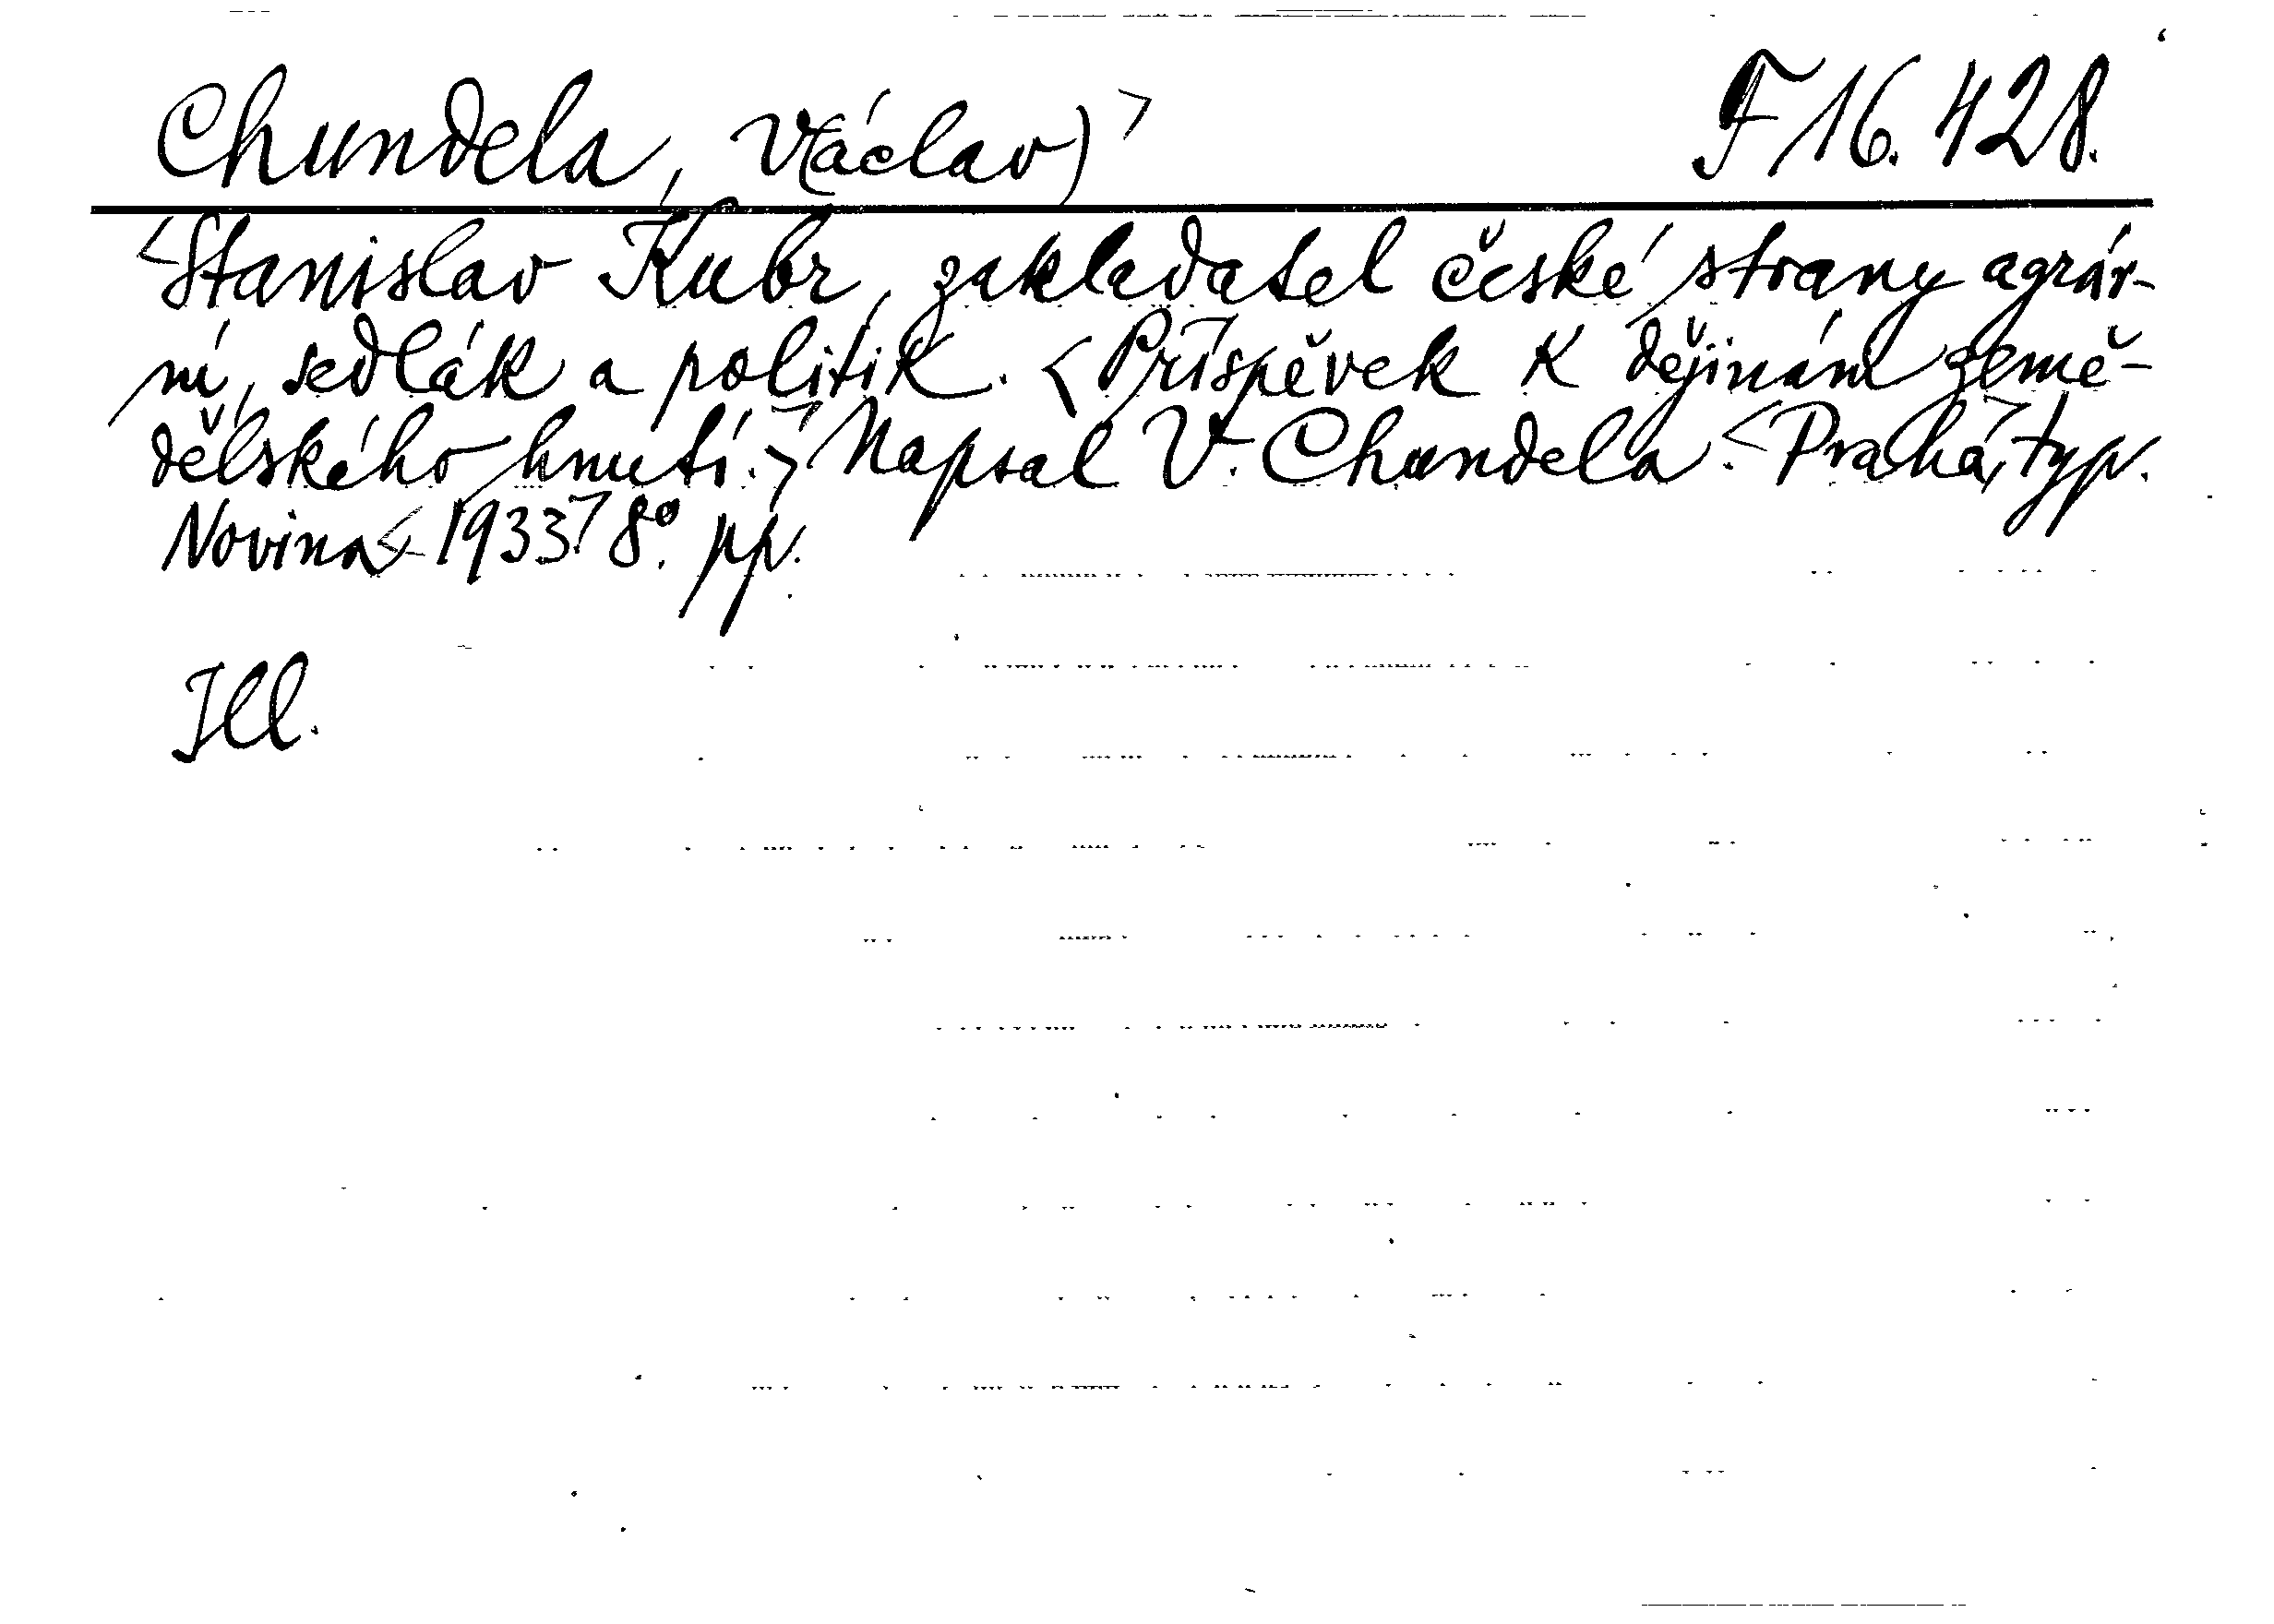 Chundela, V(áclav)> F 16.428.
<Stanislav Kubr, zakladatel české strany agrár-
ní, sedlák a politik. <Příspěvek k dějinám země-
dělského hnutí.> Napsal V. Chundela. <Praha, typ.
Novina <1933> 8°. pp.
Ill.